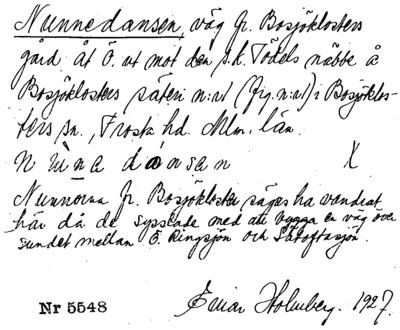 Nunnedansen, väg fr. Bosjöklosters
gård åt Ö. ut mot den s.k. Tödels näbbe å
Bosjöklosters säteri n:r 1 (frg. n:r 1) i Bosjöklos-
ters sn., Frosta hd. Mlm. län.
nùna dansan X
Nunnorna fr. Bosjökloster sägas ha vandrat
här då de sysslade med att bygga en väg över
sundet mellan Ö. Ringsjön och Sätoftasjön.
Nr 5548 Einar Holmberg. 1927.